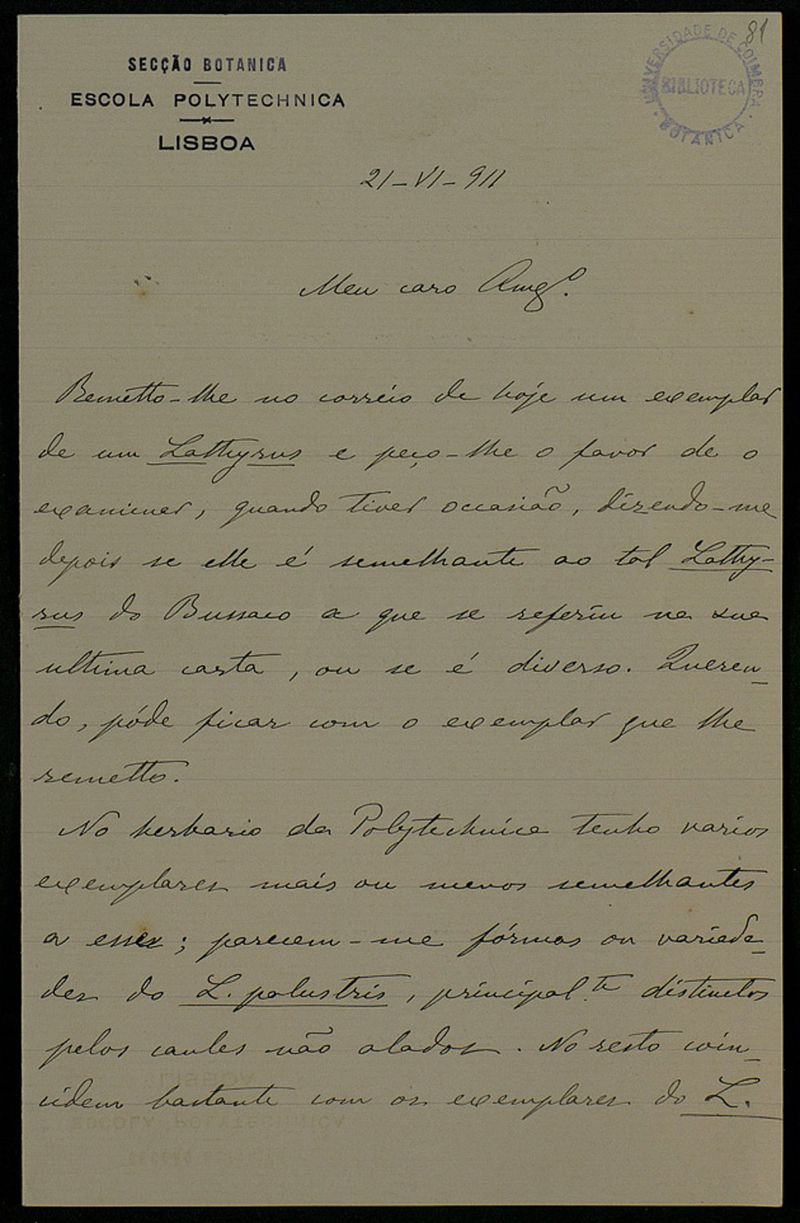 81
SECÇÃO BOTANICA
ESCOLA POLYTECHNICA
LISBOA
UNIVERSIDADE DE COIMBRA
BIBLIOTECA
BOTANICA
21-VI-911
Meu caro Amgº.
Remetto-lhe no correio de hoje um exemplar
de um Lathyrus e peço-lhe o favor de o
examinar, quando tiver occasião, dizendo-me
depois se elle é semelhante ao tal Lathy-
rus do Bussaco a que se referiu na sua
ultima carta, ou se é diverso. Queren-
do, póde ficar com o exemplar que lhe
remetto.
No herbario da Polytechnica tenho varios
exemplares mais ou menos semelhantes
a esses; parecem-me fórmas ou varieda-
des do L. palustris, principal.te distinctos
pelos caules não alados. No resto coin-
cidem bastante com os exemplares do L.